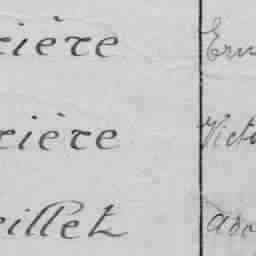 rière Ern
rière Victo
eillet Ado